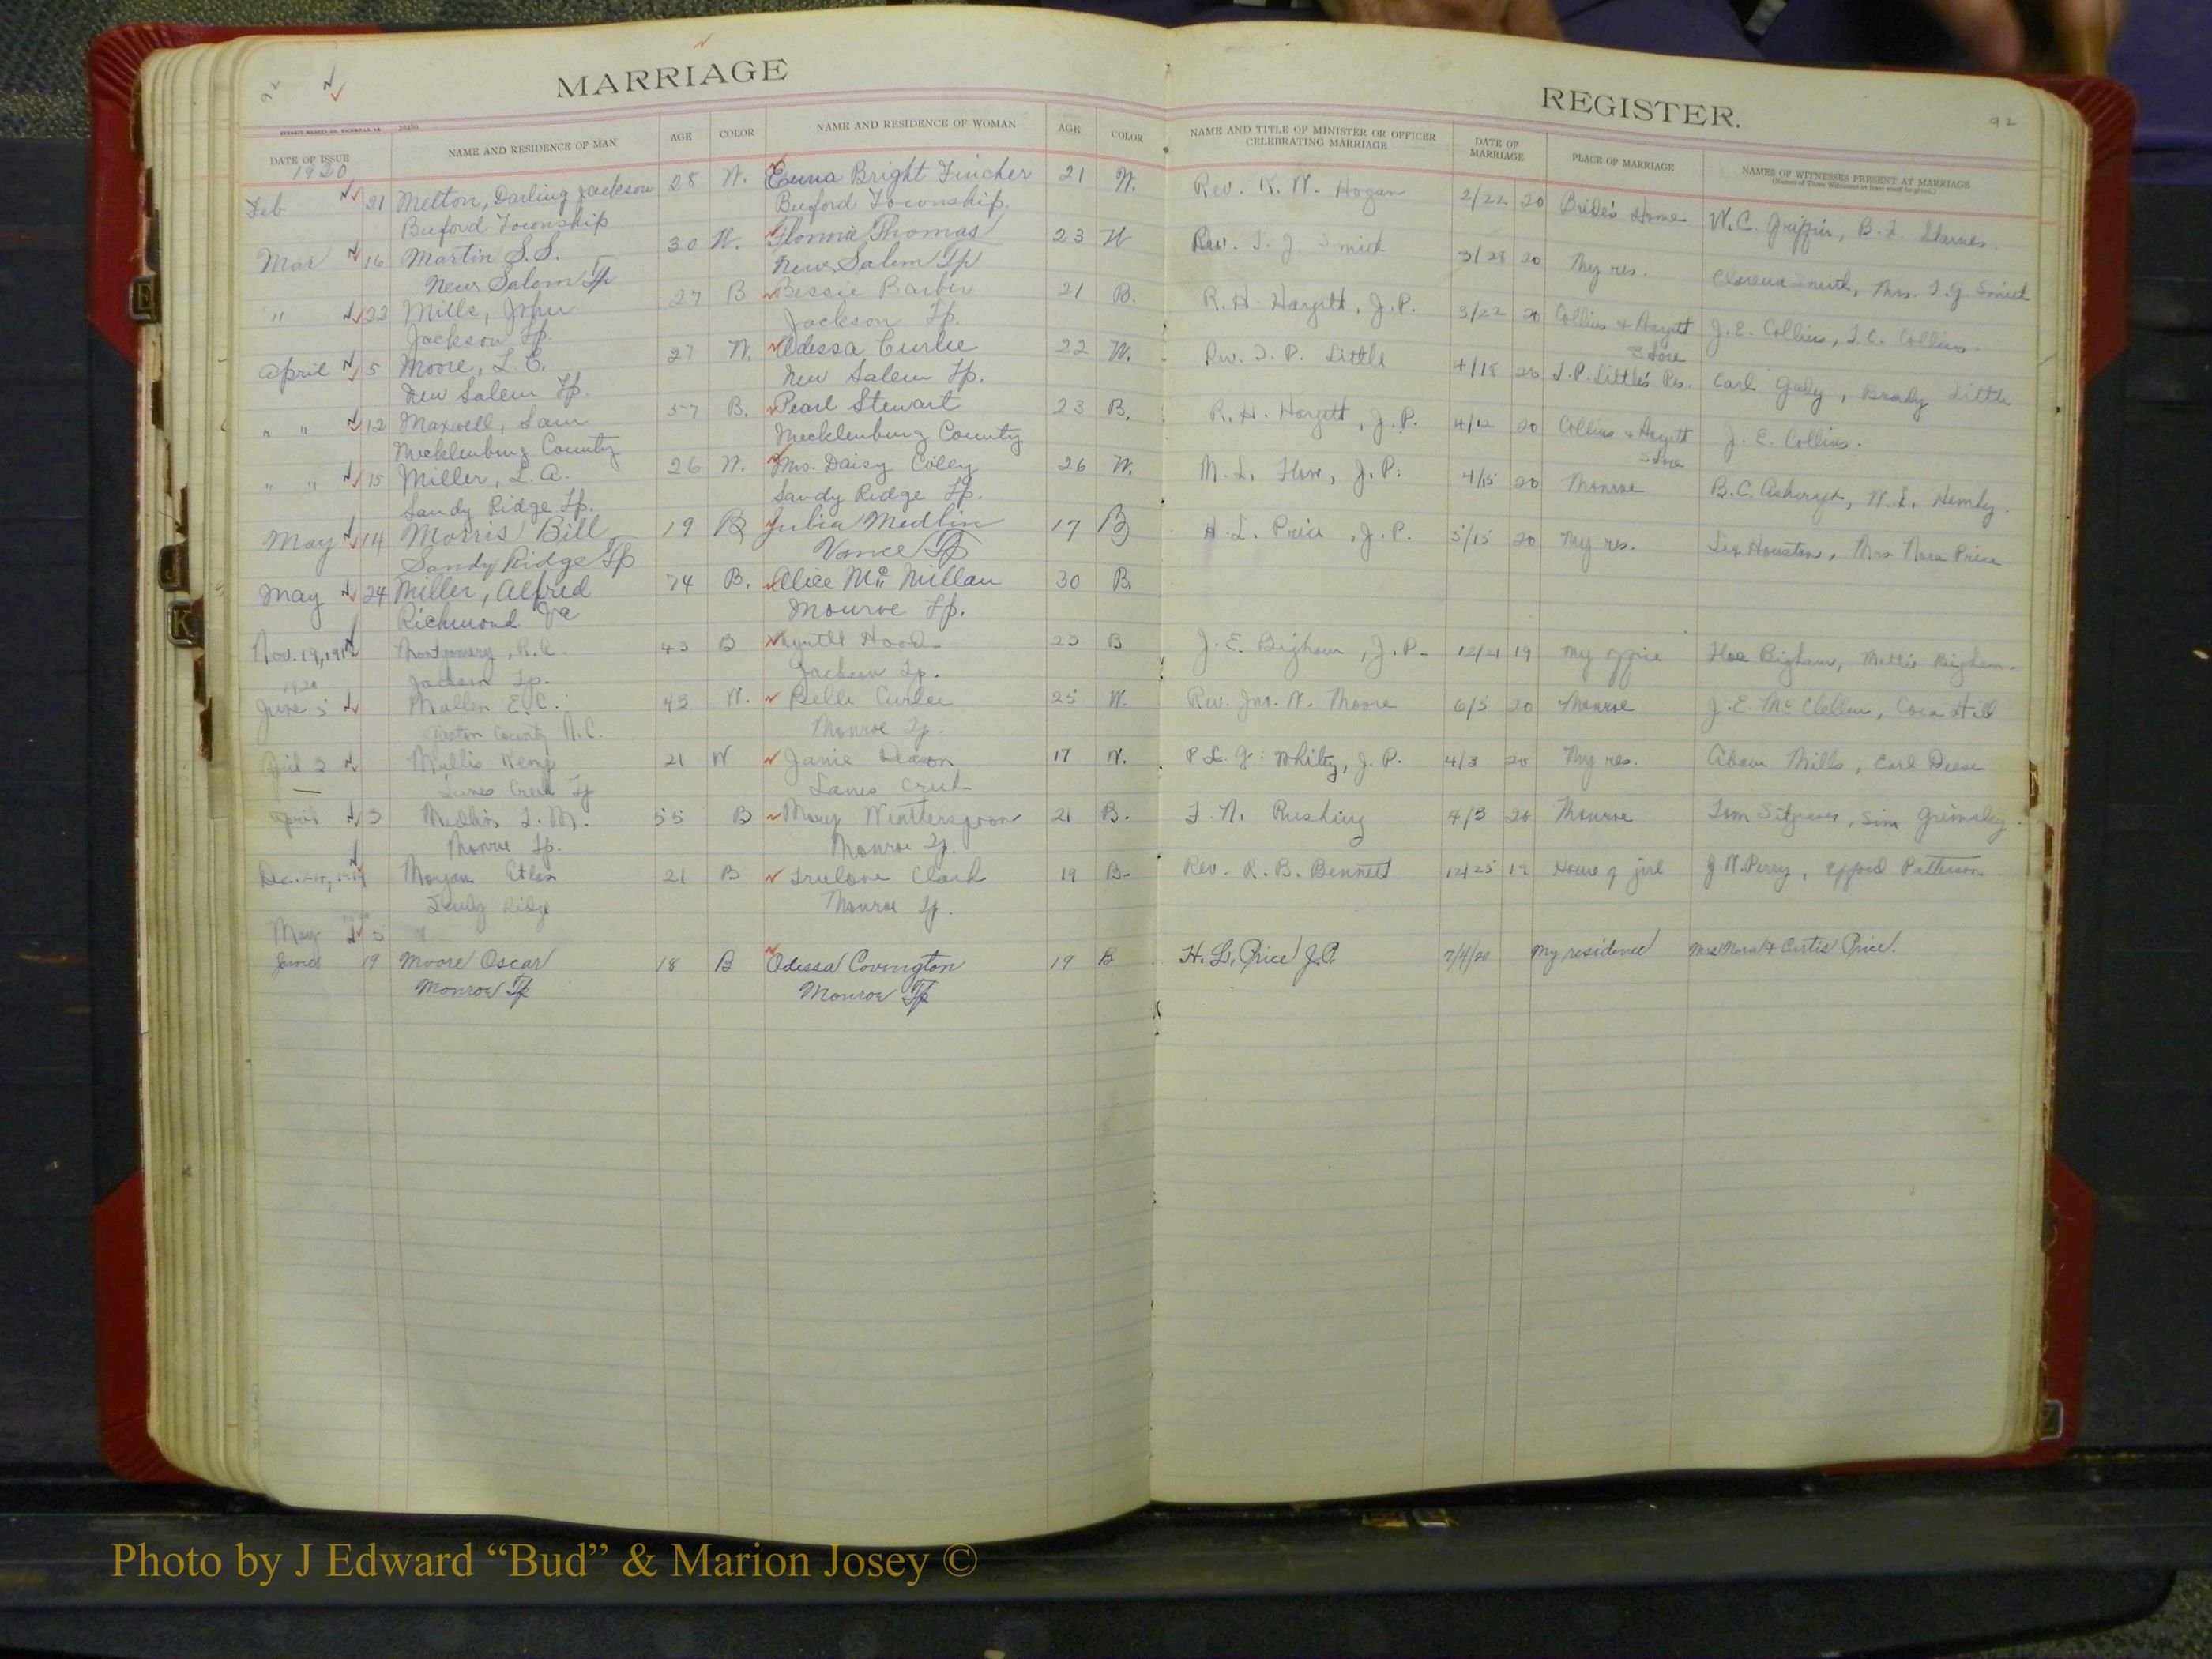 92
MARRIAGE
REGISTER.
92
DATE OF ISSUE NAME AND RESIDENCE OF MAN AGE COLOR NAME AND RESIDENCE OF WOMAN AGE COLOR NAME AND TITLE OF MINISTER OR OFFICER CELEBRATING MARRIAGE DATE OF MARRIAGE PLACE OF MARRIAGE NAMES OF WITNESSES PRESENT AT MARRIAGE
1920
Feb 21 Melton, Darling Jackson 28 W. Emma Bright Fincher 21 W. Rev. K. W. Hogan 2/22 20 Bride's Home W. C. Griffin, B. L. Starnes
Buford Township Buford Township.
Mar 16 Martin S.S. 30 W. Thomas 23 W Rev. Smith 3/28 20 My res. Smith, Mrs. Smith
New Salem Tp New Salem Tp
" 22 Mills, John 27 B Bessie Barber 21 B. R. H. Hargett, J.P. 3/22 20 Collins & Hargett Store J. E. Collins, Collins
Jackson Tp. Jackson Tp.
April 5 Moore, L. C. 27 W. Odessa Curlee 22 W. Rev. J. P. Little 4/18 20 J.P. Little's Res. Carl , Brady Little
New Salem Tp. New Salem Tp.
" " 12 Maxwell, Sam 57 B. Pearl Stewart 23 B. R. H. Hargett, J.P. 4/12 20 Collins & Hargett Store J. E. Collins.
Mecklenburg County Mecklenburg County
" " 15 Miller, L. A. 26 W. Mrs. Daisy Coley 26 W. M. L. Flow, J.P. 4/15 20 Monroe B. C. Ashcraft, Hemby.
Sandy Ridge Tp. Sandy Ridge Tp.
May 14 Morris Bill 19 B Julia Medlin 17 B H. L. Price, J.P. 5/15 20 My res. Houston, Mrs Nora Price
Sandy Ridge Tp Vance Tp
May 24 Miller, Alfred 74 B. Alice Mc Millan 30 B.
Richmond Va Monroe Tp.
Nov. 19, 1919 Montgomery, R. C. 43 B Myrtle Hood 23 B J. E. Bigham, J.P. 12/21 19 My office Bigham, Mattie Bigham
Jackson Tp. Jackson Tp.
1920
June 5 Mullen E. C. 43 W. Belle Curlee 25 W. Rev. Jno. W. Moore 6/5 20 Monroe J. E. McClellan, Cora Hill
Gaston County N.C. Monroe Tp.
April 2 Mullis Kemp 21 W Janie Deason 17 W. P. L. G. Whitey, J.P. 4/3 20 My res. Adam Mills, Earl Deese
Lanes Creek Tp Lanes Creek
April 3 Medlin 55 B Mary Witherspoon 21 B. Rushing 4/3 20 Monroe Tom Sitgraves, Sim Grimsley.
Monroe Tp. Monroe Tp.
Dec. Morgan 21 B Truelove Clark 19 B Rev. R. B. Bennett 12/25 19 House of girl J. W. Perry, Patterson
Sandy Ridge Monroe Tp.
May 5
June 19 Moore Oscar 18 B Odessa Covington 19 B H. L. Price J.P. 7/4/20 My residence Mrs Nora & Curtis Price.
Monroe Tp Monroe Tp
E
J
K
Photo by J Edward “Bud” & Marion Josey ©